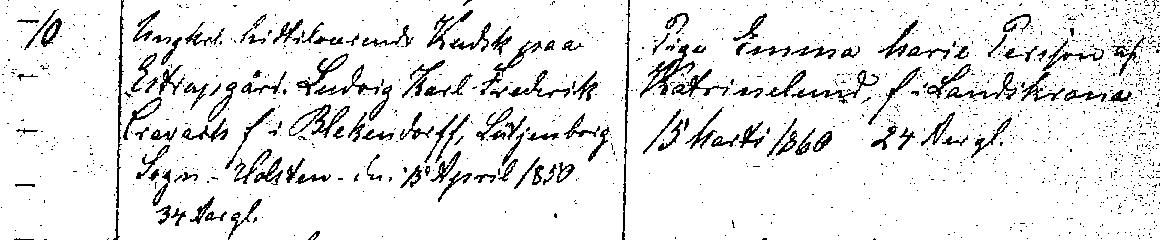 10
Ungkrl. hidtilværende Kudsk paa
Estrupgård. Ludvig Karl Frederik
f i Blekendorff, Lütjenborg
Sogn - Holsten - den 15 April 1850
34 Aargl.
Pige Emma Marie Persson af
Katrinelund, f i Landskrona
15 Marts 1860 24 Aargl.